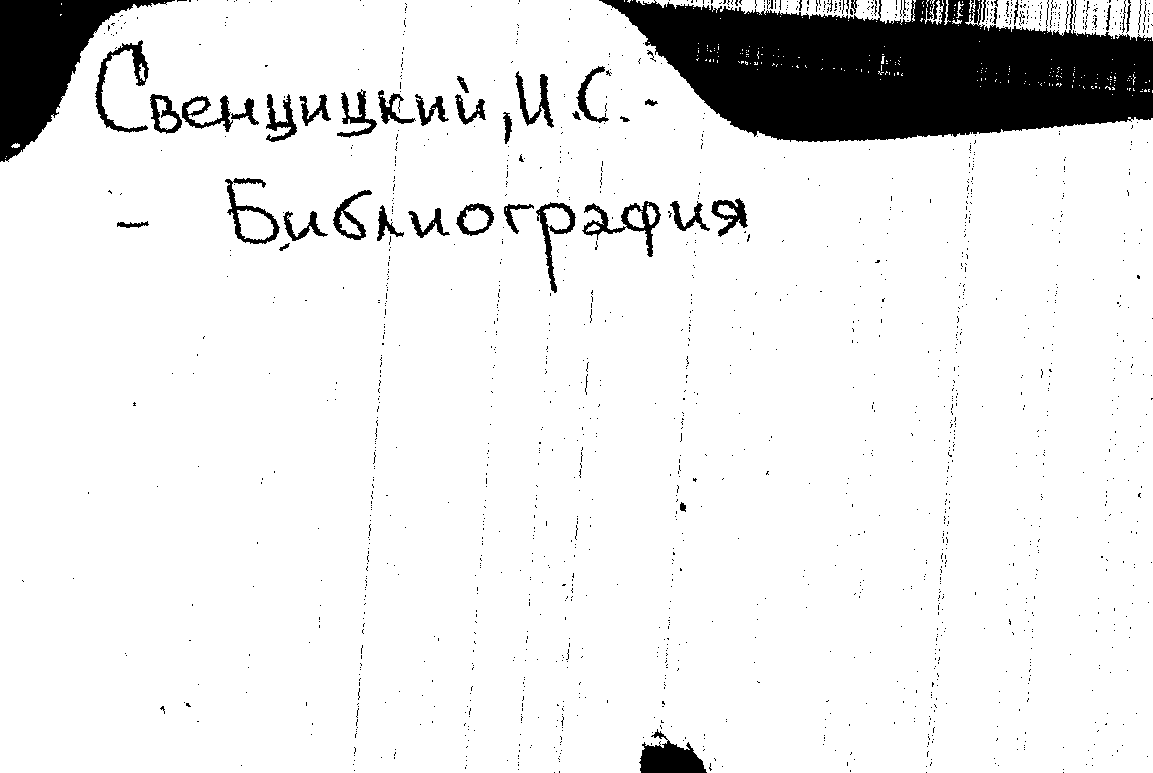 Свенцицкий, И.С. -
- Библиография